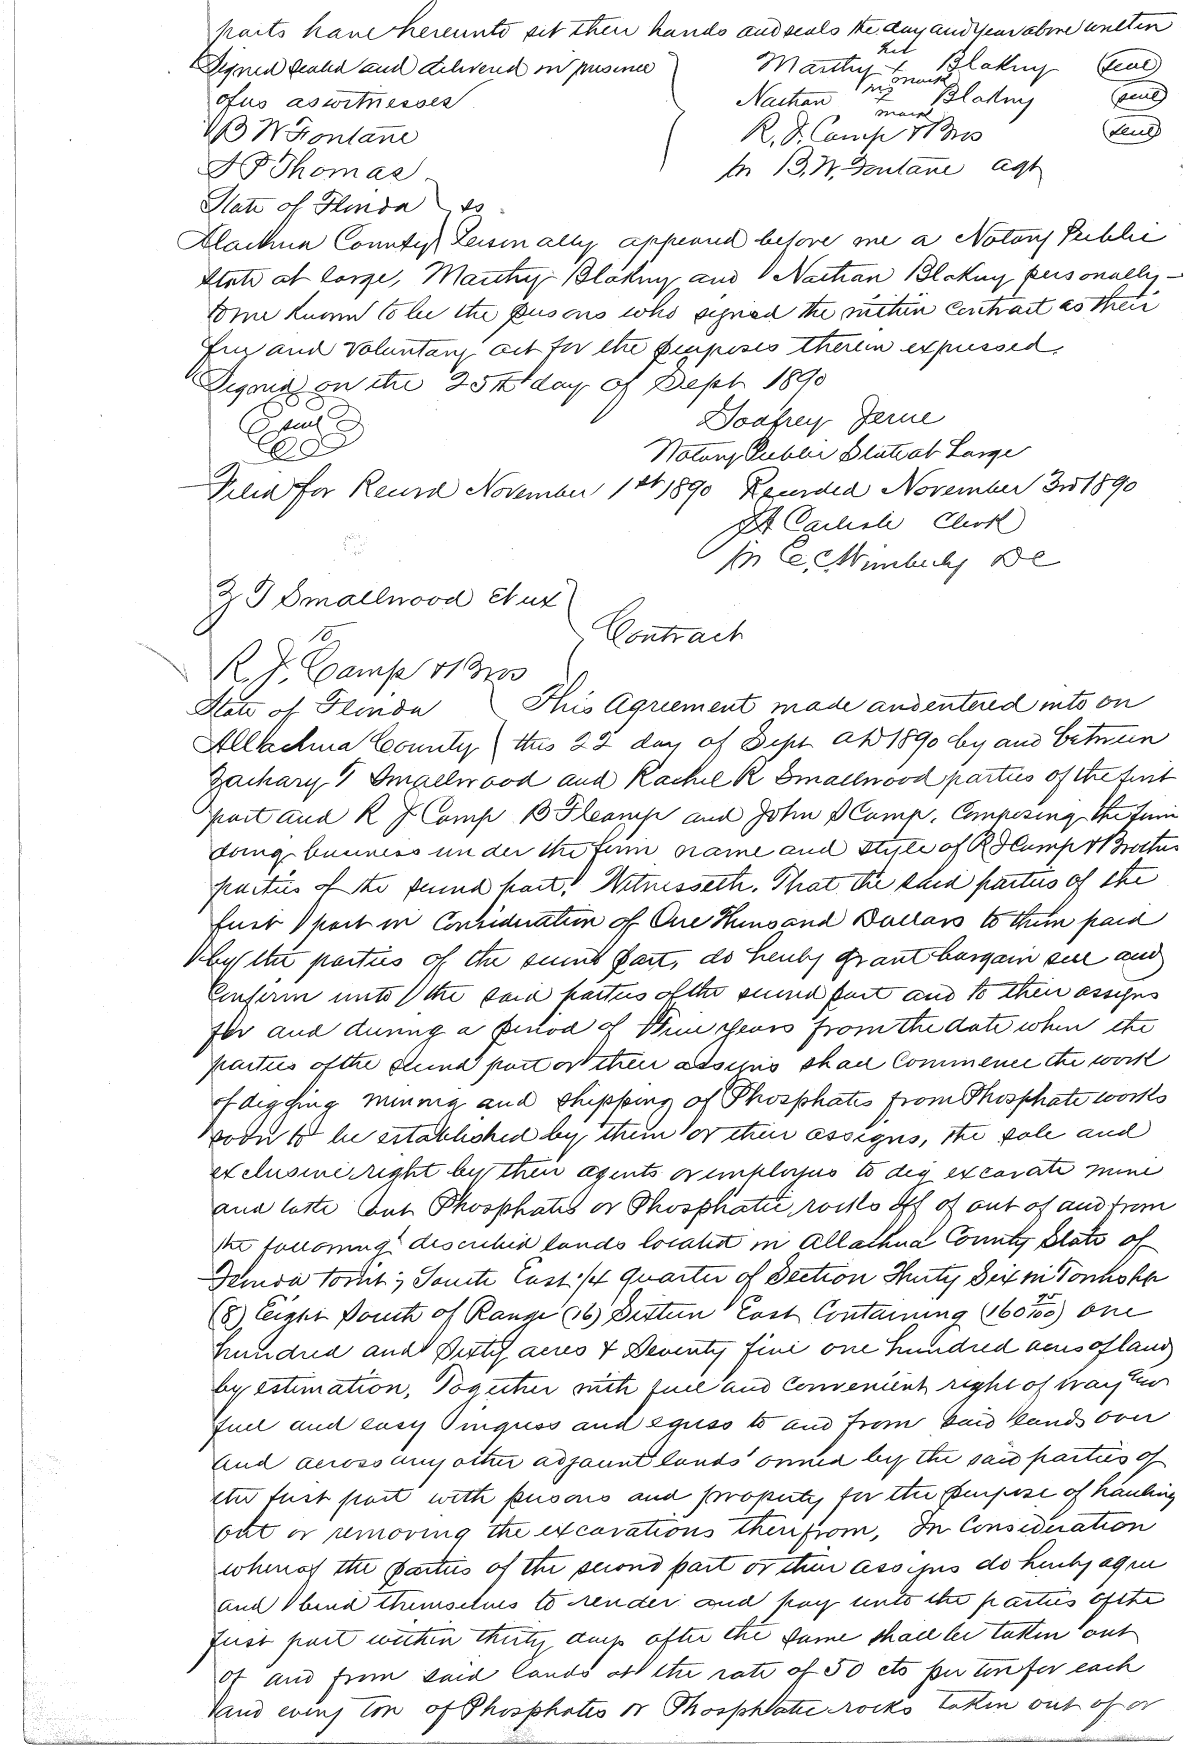 parts have hereunto set their hands and seals the day and year above written
Signed sealed and delivered in presence Marthy her + mark Blakny (seal)
of us as witnesses Nathan his + mark Blakny (seal)
B W Fontane R. J. Camp & Bros (seal)
J P Thomas pr B. W. Fontane agt
State of Florida ss
Alachua County Personally appeared before me a Notary Public
State at large, Marthy Blakny and Nathan Blakny personally
to me known to be the persons who signed the within contract as their
free and voluntary act for the purposes therein expressed.
Signed on the 25th day of Sept 1890
seal Godfrey Jerue
Notary Public State at Large
Filed for Record November 1st 1890 Recorded November 3rd 1890
Carlisle Clerk
pr E. C. Wimberly DC
Z T Smallwood et ux
to Contract
R. J. Camp & Bros
State of Florida This Agreement made and entered into on
Allachua County this 22 day of Sept AD 1890 by and between
Zachary T Smallwood and Rachel R Smallwood parties of the first
part and R J Camp B F Camp and John S Camp, Composing the firm
doing business under the firm name and style of R J Camp & Brothers
parties of the second part, Witnesseth. That the said parties of the
first part in Consideration of One Thousand Dollars to them paid
by the parties of the second part, do hereby grant bargain sell and
Confirm unto the said parties of the second part and to their assigns
for and during a period of years from the date when the
parties of the second part or their assigns shall Commence the work
of digging mining and shipping of Phosphates from Phosphate works
soon to be established by them or their assigns, the sole and
exclusive right by their agents or employees to dig excavate mine
and take out Phosphates or Phosphatic rocks off of out of and from
the following described lands located in Allachua County State of
Florida towit; South East 1/4 quarter of Section Thirty Six in Township
(8) Eight South of Range (16) Sixteen East Containing (160 75/100) one
hundred and Sixty acres & Seventy five one hundred acres of land
by estimation, Together with full and Convenient right of way and
full and easy ingress and egress to and from said lands over
and across any other adjacent lands owned by the said parties of
the first part with persons and property for the purpose of hauling
out or removing the excavations therefrom, In Consideration
whereof the parties of the second part or their assigns do hereby agree
and bind themselves to render and pay unto the parties of the
first part within thirty days after the same shall be taken out
of and from said lands at the rate of 50 cts per ton for each
and every ton of Phosphates or Phosphatic rocks taken out of or